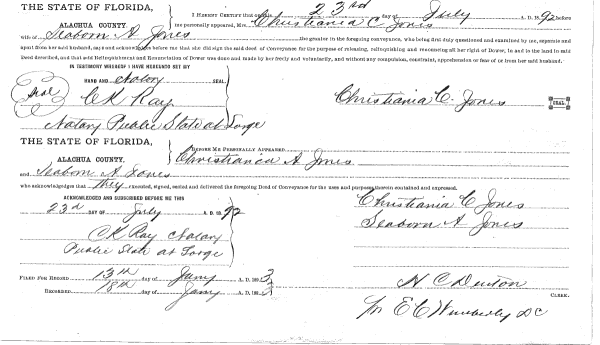 THE STATE OF FLORIDA,
ALACHUA COUNTY.
I HEREBY CERTIFY that on this 23rd day of July A. D. 1892 before
me personally appeared, Mrs. Christiania C. Jones
wife of Seaborn A Jones the grantor in the foregoing conveyance, who being duly questioned and examined by me, separate and
apart from her said husband, say and acknowledge before me that she did sign the said deed of conveyance for the purpose of releasing, relinquishing and renouncing all her right of Dower, in and to the land in said
Deed described, and that said Relinquishment and Renunciation of Dower was done and made by her freely and voluntarily, and without any compulsion, constraint, apprehension or fear of or from her said husband.
IN TESTIMONY WHEREOF I HAVE HEREUNTO SET BY
HAND AND Notary SEAL
Seal
CK Ray
Christiania C. Jones
SEAL
Notary Public State at Large
THE STATE OF FLORIDA,
ALACHUA COUNTY.
BEFORE ME PERSONALLY APPEARED
Christianica A Jones
and Seaborn A Jones
who acknowledges that they executed, signed, sealed and delivered the foregoing Deed of Conveyance for the uses and purposes therein contained and expressed.
ACKNOWLEDGED AND SUBSCRIBED BEFORE ME THIS
23d DAY OF July A. D. 1892
Christiania C Jones
Seaborn A Jones
CK Ray Notary
Public State at Large
FILED FOR RECORD 13th day of Jany A. D. 1893
RECORDED 18th day of Jany A. D. 1893
H C Denton
CLERK.
E C Wimberly DC